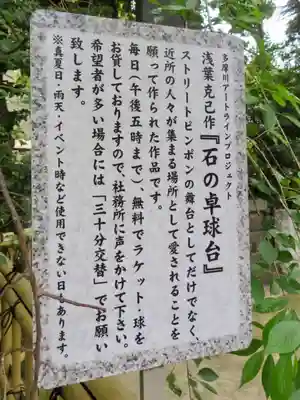 多摩川アートラインプロジェクト
浅葉克己作『石の卓球台』
ストリートピンポンの舞台としてだけでなく、
近所の人々が集まる場所として愛されることを
願って作られた作品です。
毎日(午後五時まで)、無料でラケット・球を
お貸しておりますので、社務所に声をかけて下さい。
希望者が多い場合には「三十分交替」でお願い
致します。
※真夏日・雨天・イベント時など使用できない日もあります。